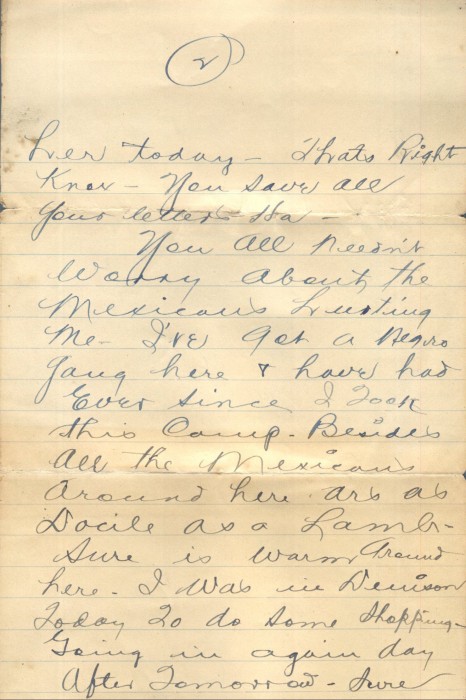 2
her today - Thats Right
Knox - You save all
your letters Ha -
You All Needn't
Worry About the
Mexicans hurting
Me - I've got a Negro
Gang here & have had
Ever since I Took
this Camp - Besides
All the Mexicans
Around here are as
Docile as a Lamb -
Sure is warm Around
here - I Was in Denison
Today To do some Shopping -
Going in again day
After Tomorrow - Sure